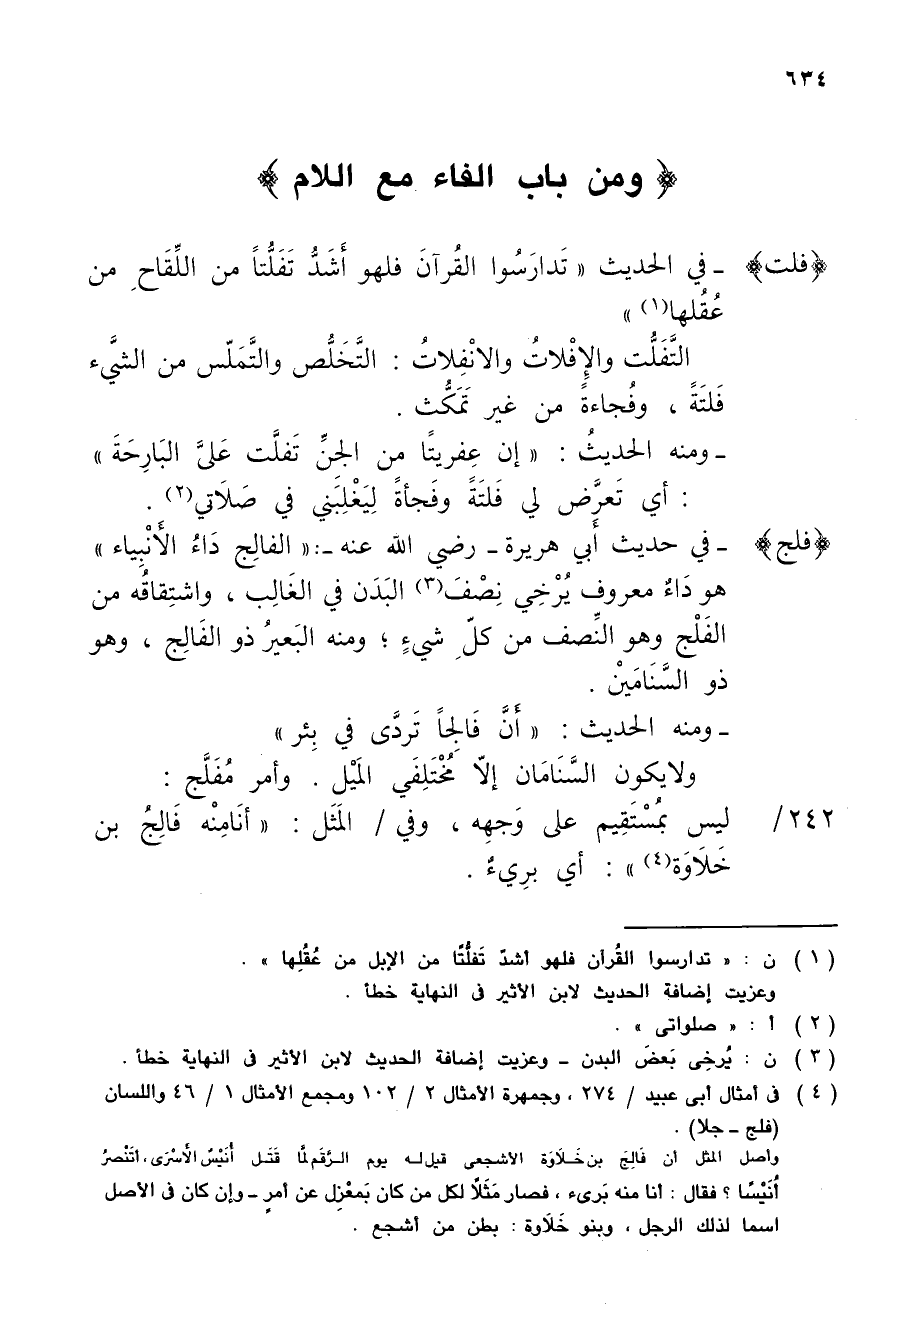 ٦٣٤
﴿ ومن باب الفاء مع اللام ﴾
﴿فلت﴾ ـ في الحديث « تَدارَسُوا القُرآنَ فلهو أَشَدُّ تَفَلُّتاً من اللِّقَاحِ من
عُقُلها(١) »
التَّفَلُّت والإِفْلاتُ والانْفِلاتُ : التَّخَلُّص والتَّمَلّس من الشَّيء
فَلتَةً ، وفُجاءةً من غير تَمَكُّث .
ـ ومنه الحديثُ : « إن عِفريتًا من الجنِّ تَفلَّت عَليَّ البَارِحَةَ »
: أي تَعرَّض لي فَلتَةً وفَجأةً لِيَغْلِبَني في صَلَاتي(٢) .
﴿فلج﴾ ـ في حديث أَبي هريرة ـ رضي الله عنه ـ:« الفالِج دَاءُ الأَنْبِياء »
هو دَاءٌ معروف يُرْخِي نِصْفَ(٣) البَدَن في الغَالِب ، واشتِقاقُه من
الفَلْج وهو النِّصف من كلّ شيءٍ ؛ ومنه البَعيرُ ذو الفَالِج ، وهو
ذو السَّنَامَينْ .
ـ ومنه الحديث : « أَنَّ فَالِجاً تَردَّى في بِئر »
ولايكون السَّنَامَان إلاّ مُخْتَلِفَي المَيْل . وأمر مُفَلَّج :
٢٤٢/ ليس بمُسْتَقِيم على وَجهِه ، وفي / المَثَل : « أنَامِنْه فَالِجُ بن
خَلَاوَة(٤) » : أي برِيءٌ .
(١) ن : « تدارسوا القُرآن فلهو أشدّ تَفلُّتًا من الإبل من عُقُلِها » .
وعزيت إضافة الحديث لابن الأثير فى النهاية خطأ .
(٢) أ : « صلواتى » .
(٣) ن : يُرخِى بَعضَ البدن ـ وعزيت إضافة الحديث لابن الأثير فى النهاية خطأ .
(٤) فى أمثال أبى عبيد / ٢٧٤ ، وجمهرة الأمثال ٢ / ١٠٢ ومجمع الأمثال ١ / ٤٦ واللسان
(فلج ـ جلا) .
وأصل المثل أن فَالِجَ بن خَلَاوَة الأشجعى قيل له يوم الرَّقَم لمَّا قَتَل أُنَيْسٌ الأَسْرَى، أتَنْصرُ
أُنَيْسًا ؟ فقال : أنا منه بَرىء ، فصار مَثَلًا لكل من كان بمَعْزِل عن أمرٍ ـ وإن كان فى الأصل
اسما لذلك الرجل ، وبنو خَلَاوة : بطن من أشجع .